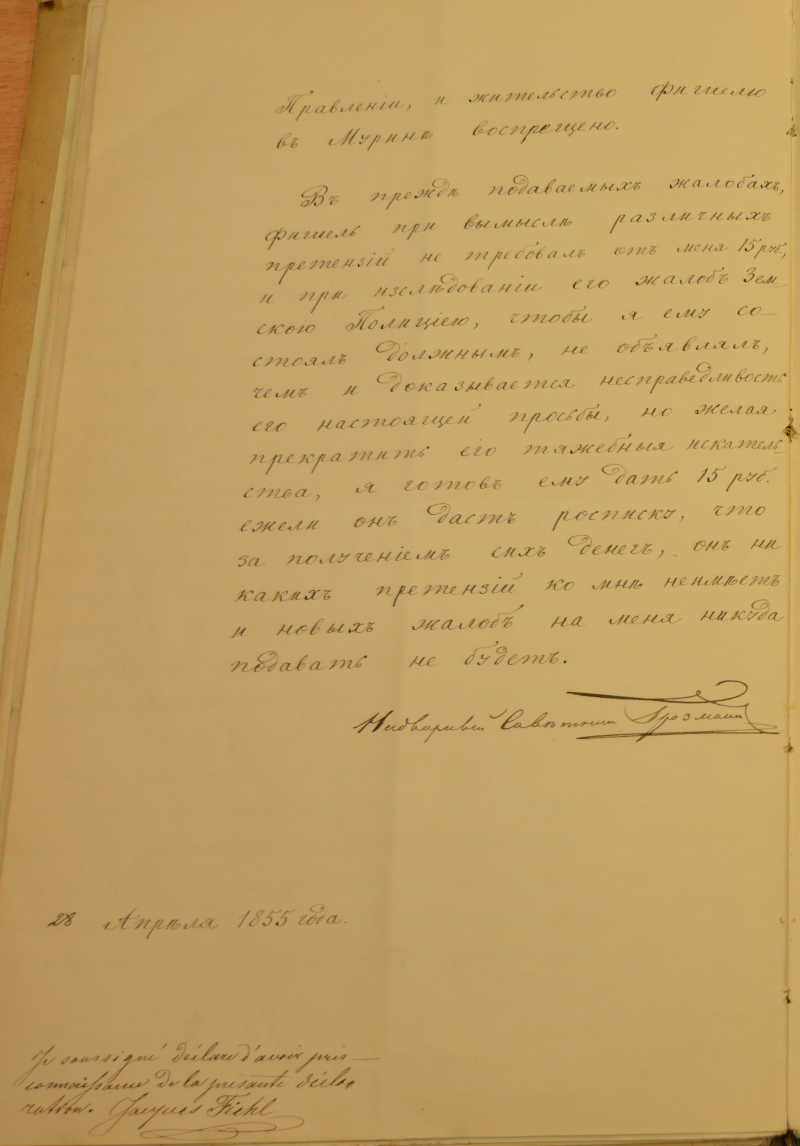 Правленіи, и жительство Фигиелю
въ Муринѣ воспрещено.
Въ преждѣ подаваемыхъ жалобахъ,
Фигиель при вымыслѣ различныхъ
претензій не требовалъ отъ меня 15 руб,
и при изслѣдованіи его жалобъ Зем-
скою Полиціею, чтобы я ему со-
стоялъ должнымъ, не объявлялъ,
чемъ и доказывается несправедливость
его настоящей просьбы, но желая
прекратить его тяжебныя искатель-
ства, я готовъ ему дать 15 руб.
ежели онъ дастъ росписку, что
за полученіемъ сихъ денегъ, онъ ни
какихъ претензій ко мнѣ неимѣетъ
и новыхъ жалобъ на меня никуда
подавать не будетъ.
Надворный Совѣтникъ
28 Апрѣля 1855 года.
Je soussigné déclare d'avoir pris
connaissance de la présente décla-
ration. Jacques Fiehl